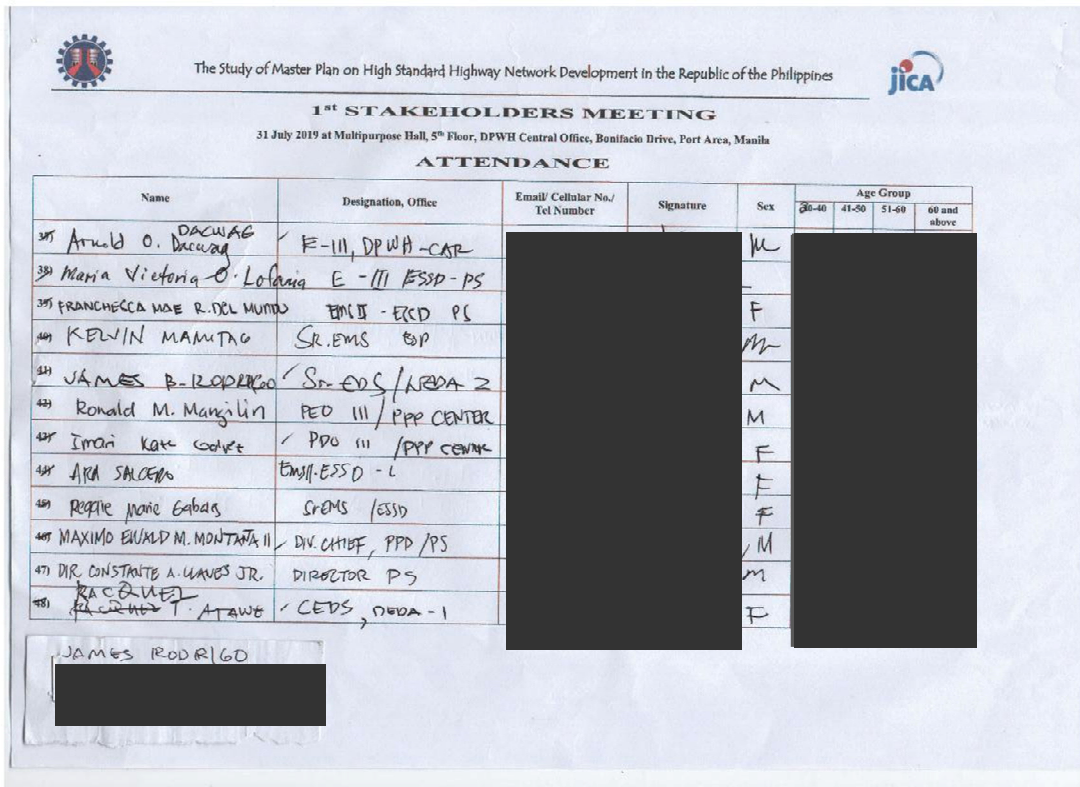 The Study of Master Plan on High Standard Highway Network Development in the Republic of the Philippines
jICA
1st STAKEHOLDERS MEETING
31 July 2019 at Multipurpose Hall, 5th Floor, DPWH Central Office, Bonifacio Drive, Port Area, Manila
ATTENDANCE
Name Designation, Office Email/ Cellular No./ Tel Number Signature Sex Age Group
20-40 41-50 51-60 60 and above
37) Arnold O. Dacwag DACWAG E-III, DPWH-CAR M
38) Maria Victoria O. E-III ESSD-PS
39) FRANCHESCA MAE R. DEL MUNDO PS F
40) KELVIN SR. EMS M
41) JAMES B. RODRIGO Sr. EDS / NEDA 2 M
42) Ronald M. Mangilin PEO III / PPP CENTER M
43) Imari Kate PDO III / PPP CENTER F
44) ARA SALCEDO ESSD F
45) Marie SrEMS /ESSD F
46) MAXIMO EWALD M. MONTAÑA II DIV. CHIEF, PPD /PS M
47) DIR. CONSTANTE A. LLANES JR. DIRECTOR PS M
48) RACQUEL T. CEDS, NEDA-1 F
JAMES RODRIGO